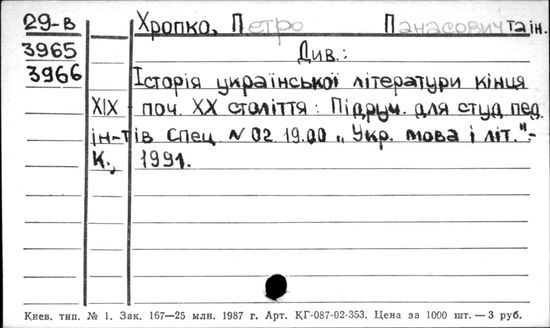 29-в Хропко, Петро Панасович та ін.
3965 Див.:
3966 Історія української літератури кінця
XIX - поч. XX століття : Підруч. для студ пед
ін-тів спец N 02 19.00 „Укр. мова і літ.".-
К., 1991.
Киев. тип. № 1. Зак. 167—25 млн. 1987 г. Арт. КГ-087-02-353. Цена за 1000 шт. — 3 руб.